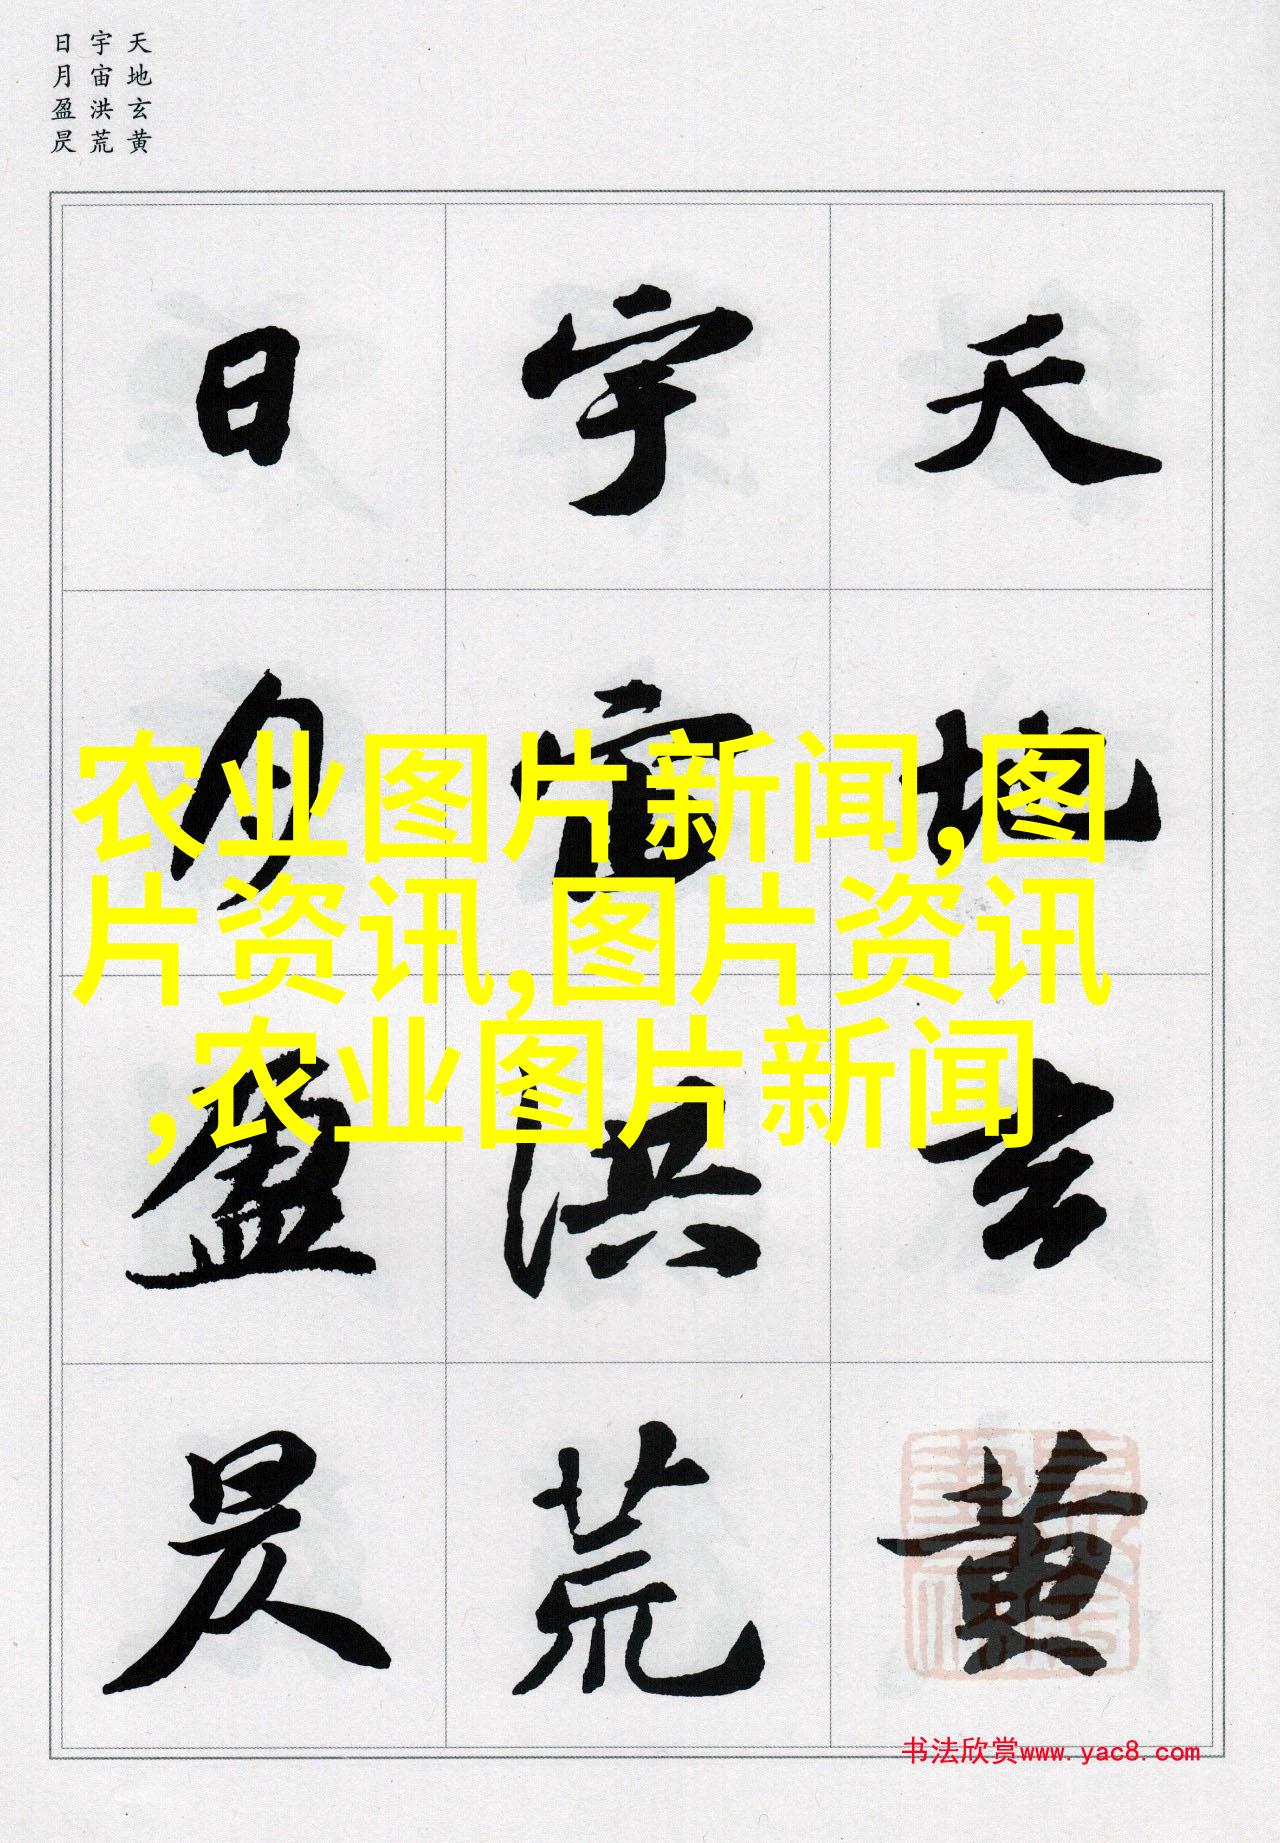 天地玄黄
宇宙洪荒
日月盈昃
天地玄黄
宇宙洪荒
日月盈昃
农业图片新闻,图
片资讯,图片资讯
,农业图片新闻
书法欣赏www.yac8.com